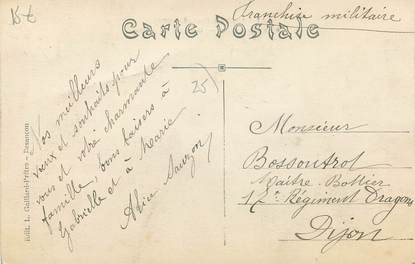 15€
Franchise militaire
Carte Postale
25
Vos meilleurs
vœux et souhaits pour
vous et votre charmante
famille, bons baisers à
Gabrielle et à Marie
Alice
Monsieur
Bossoutrot
Maître Bottier
Régiment Dragons
Dijon
Edit. L. Gaillard-Prêtre - Besançon